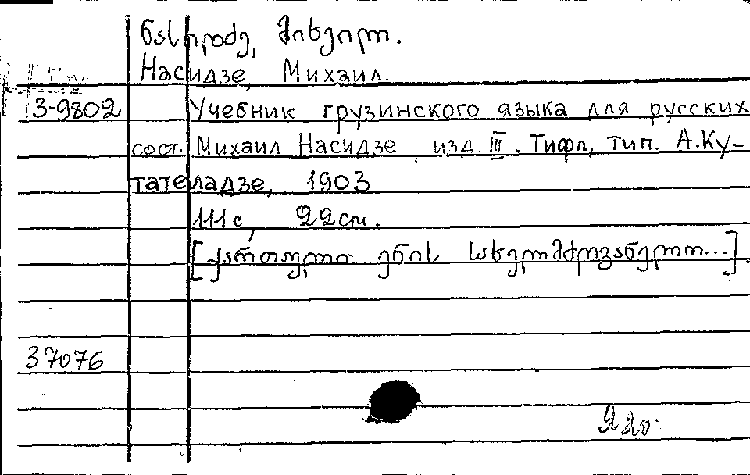 ნასიძე, მიხეილ.
Насидзе, Михаил.
3-9802 Учебник грузинского языка для русских
сост. Михаил Насидзе изд. III. Тифл., тип. А. Ку-
тателадзе, 1903
111 с, 22 см.
[ქართული ენის სახელმძღვანელო...]
37076